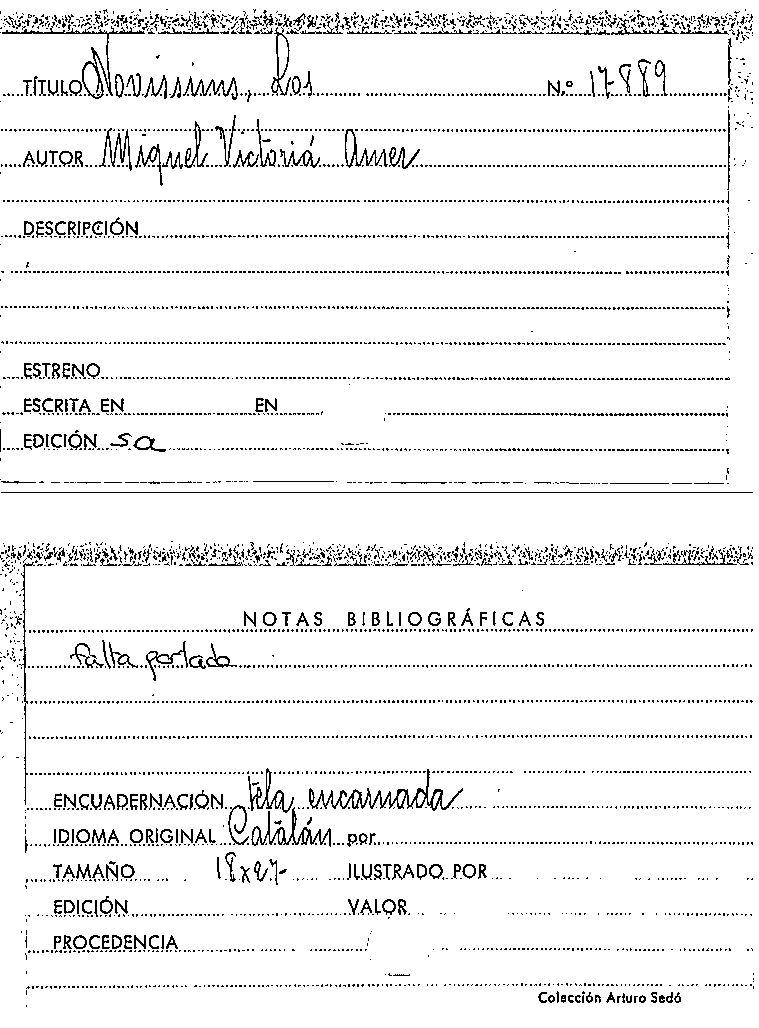 TÍTULO Novissims, Los N.º 17-889
AUTOR Miquel Victoriá Amer
DESCRIPCIÓN
ESTRENO
ESCRITA EN EN
EDICIÓN sa
NOTAS BIBLIOGRÁFICAS
falta portada
ENCUADERNACIÓN tela encarnada
IDIOMA ORIGINAL Catálán por
TAMAÑO 18x27- ILUSTRADO POR
EDICIÓN VALOR
PROCEDENCIA
Colección Arturo Sedó